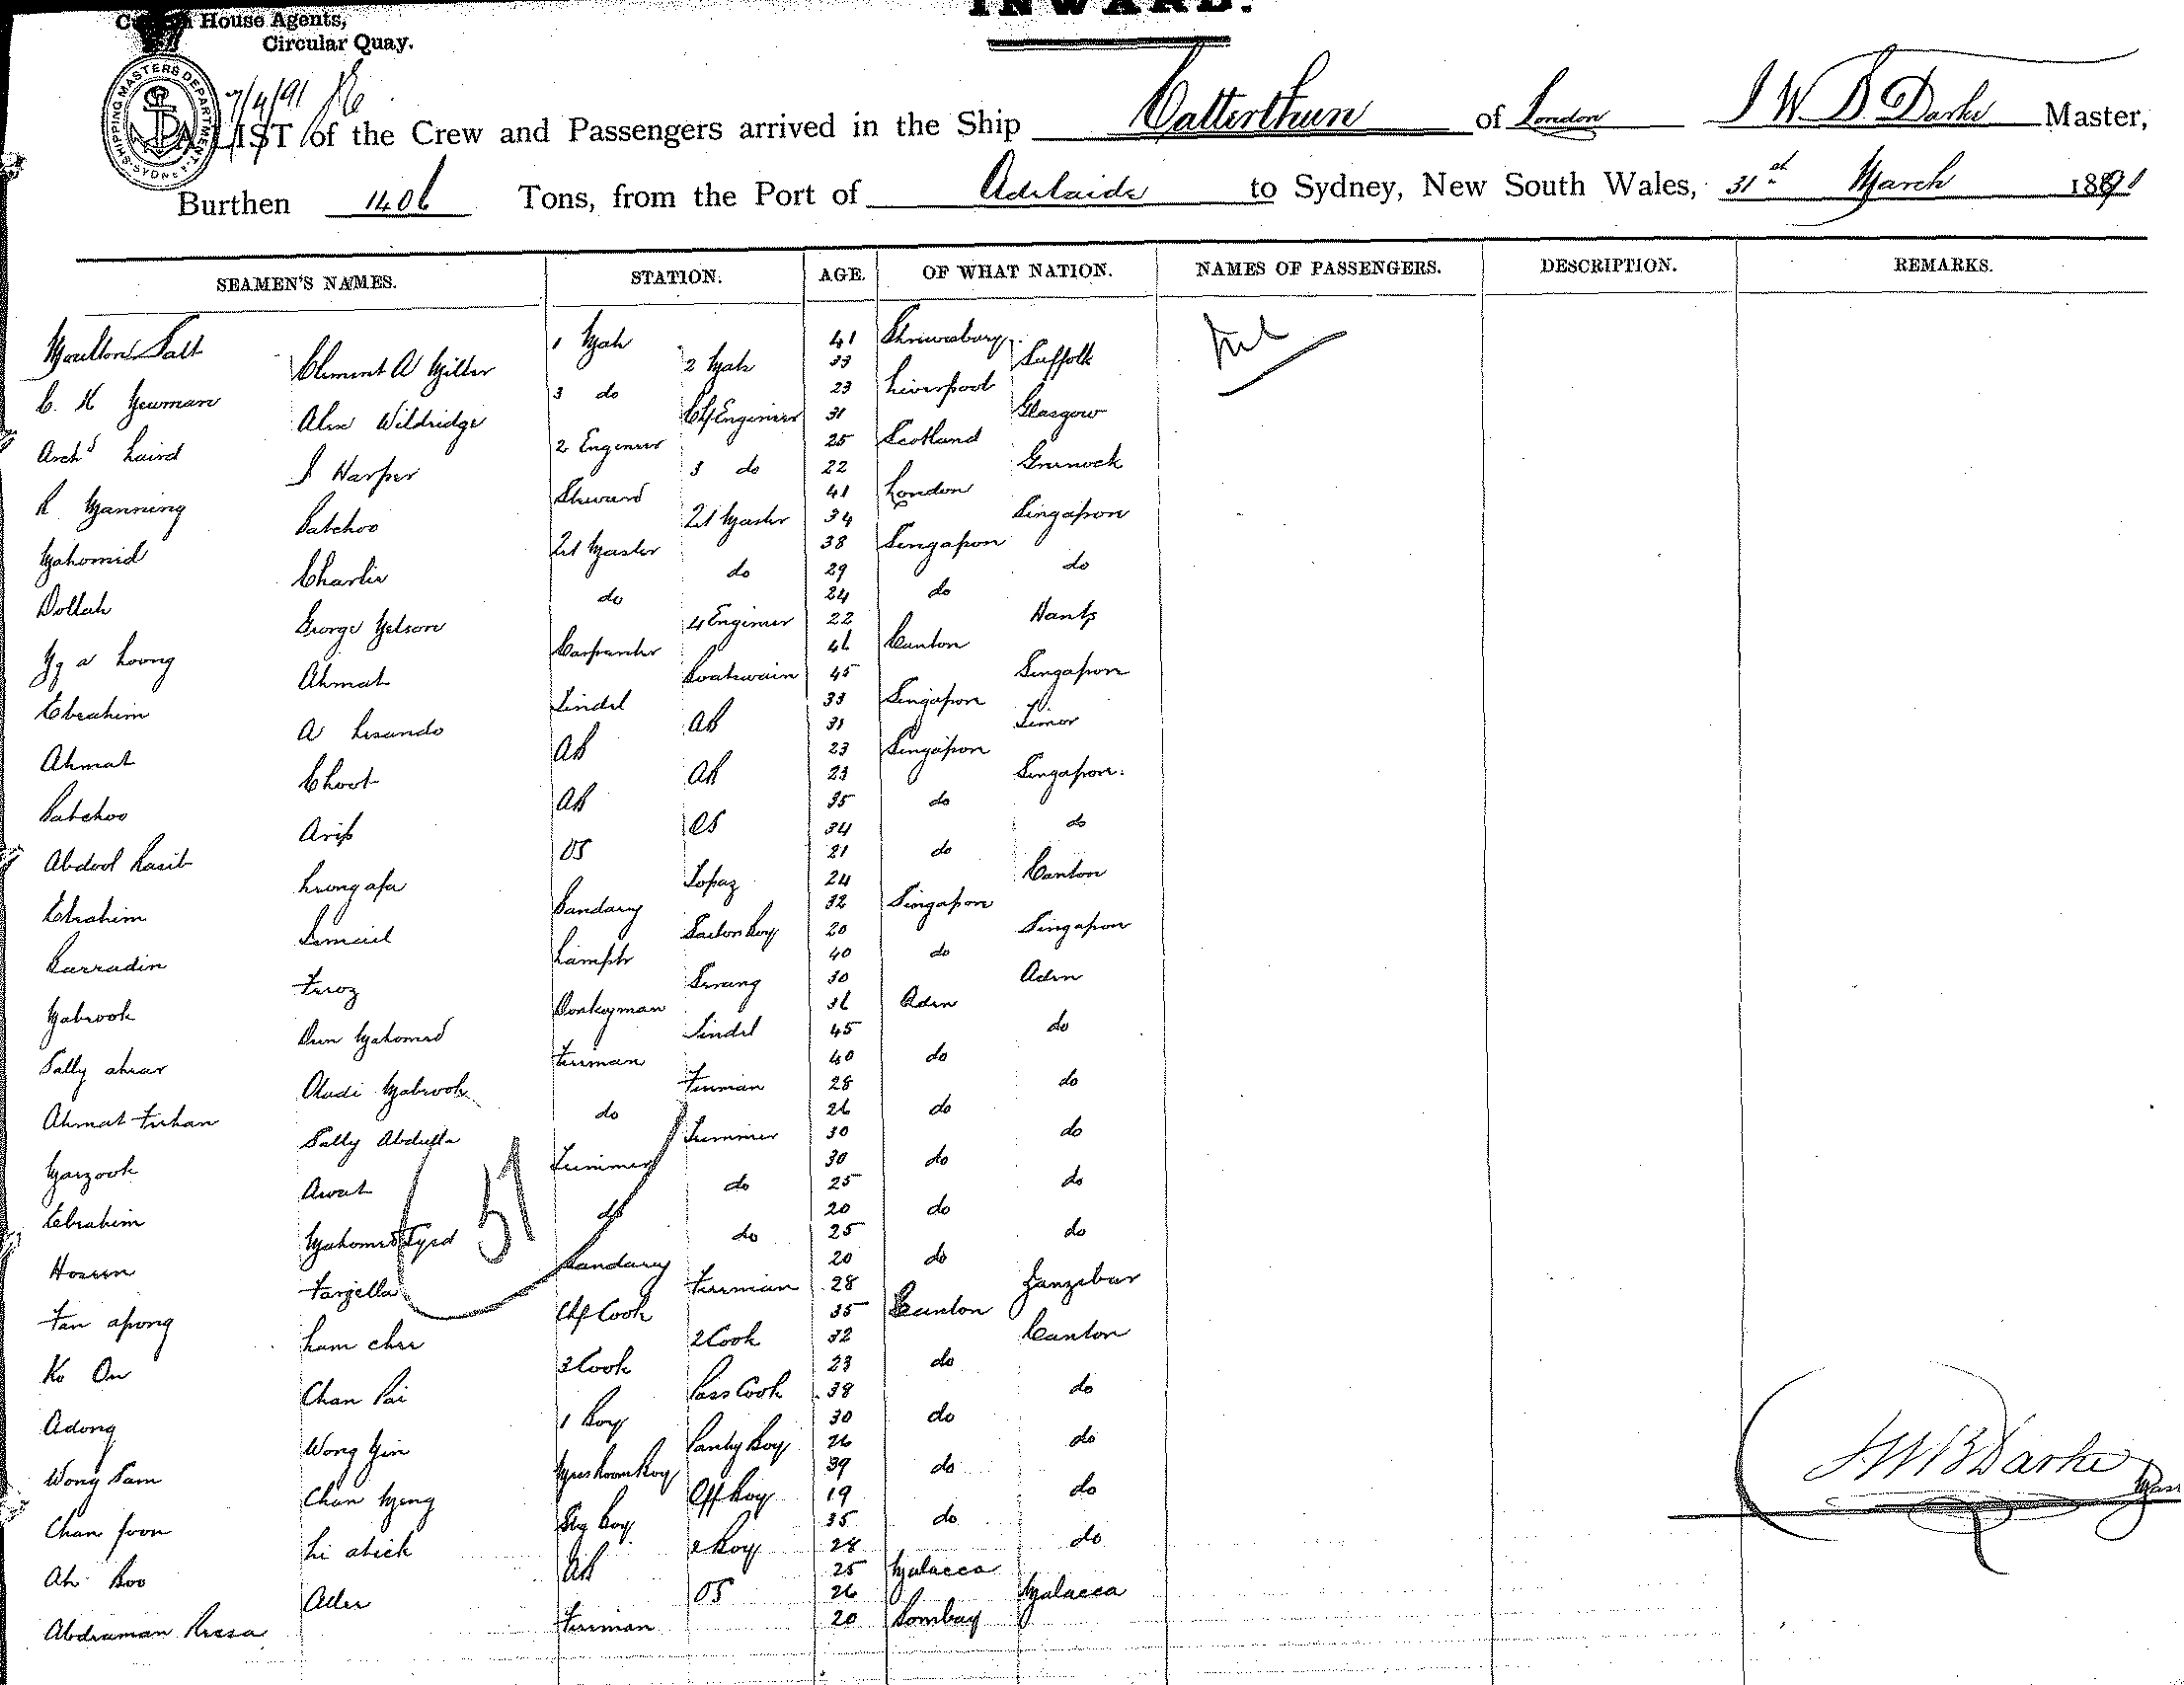 INWARD.
House Agents,
Circular Quay.
SHIPPING MASTERS DEPARTMENT SYDNEY
7/4/91
A LIST of the Crew and Passengers arrived in the Ship Catterthun of London J W B Darke Master,
Burthen 1406 Tons, from the Port of Adelaide to Sydney, New South Wales, 31st March 1891
SEAMEN'S NAMES. STATION. AGE. OF WHAT NATION. NAMES OF PASSENGERS. DESCRIPTION. REMARKS.
Moulton Salt 1 Mate 41 Shrewsbury Nil
Clement A Miller 2 Mate 33 Suffolk
C. H Newman 3 do 23 Liverpool
Alex Wildridge Chf Engineer 31 Glasgow
Archd Laird 2 Engineer 25 Scotland
J Harper 3 do 22 Greenock
R Manning Steward 41 London
Batchoo Qt Master 34 Singapore
Mahomid Qt Master 38 Singapore
Charlie do 29 do
Dollah do 24 do
George Nelson 4 Engineer 22 Hants
Ng a Loong Carpenter 46 Canton
Ahmat Boatswain 45 Singapore
Ebrahim Tindel 33 Singapore
A Lisando AB 31 Timor
Ahmat AB 23 Singapore
Choot AB 23 Singapore
Batchoo AB 35 do
Arip OS 34 do
Abdool Rasit OS 21 do
Leongafa Topaz 24 Canton
Ebrahim Bandary 32 Singapore
Ismail Saloon Boy 20 Singapore
Barradin Lamptr 40 do
Feroz Serang 30 Aden
Mabrook Donkeyman 36 Aden
Deen Mahomed Tindel 45 do
Sally ahear Fireman 40 do
Aludi Mabrook Fireman 28 do
Ahmat Firhan do 26 do
Sally Abdulla Trimmer 30 do
Marzook Trimmer 30 do
Awat do 25 do
Ebrahim do 20 do
Mahomed Syed do 25 do
Hoseen Bandary 20 do
Farjella Fireman 28 Zanzibar
Fan apong Chf Cook 35 Canton
Lum chee 2 Cook 32 Canton
Ko On 3 Cook 23 do
Chan Pai Pass Cook 38 do
Adong 1 Boy 30 do
Wong Yin Pantry Boy 26 do
Wong Sam Messroom Boy 39 do
Chan Meng Off Boy 19 do
Chan foon Stg Boy 35 do
Li atick 2 Boy 28 do
Ah Boo AB 25 Malacca
Ader OS 26 Malacca
Abdraman Reesa Fireman 20 Bombay
51
J W B Darke